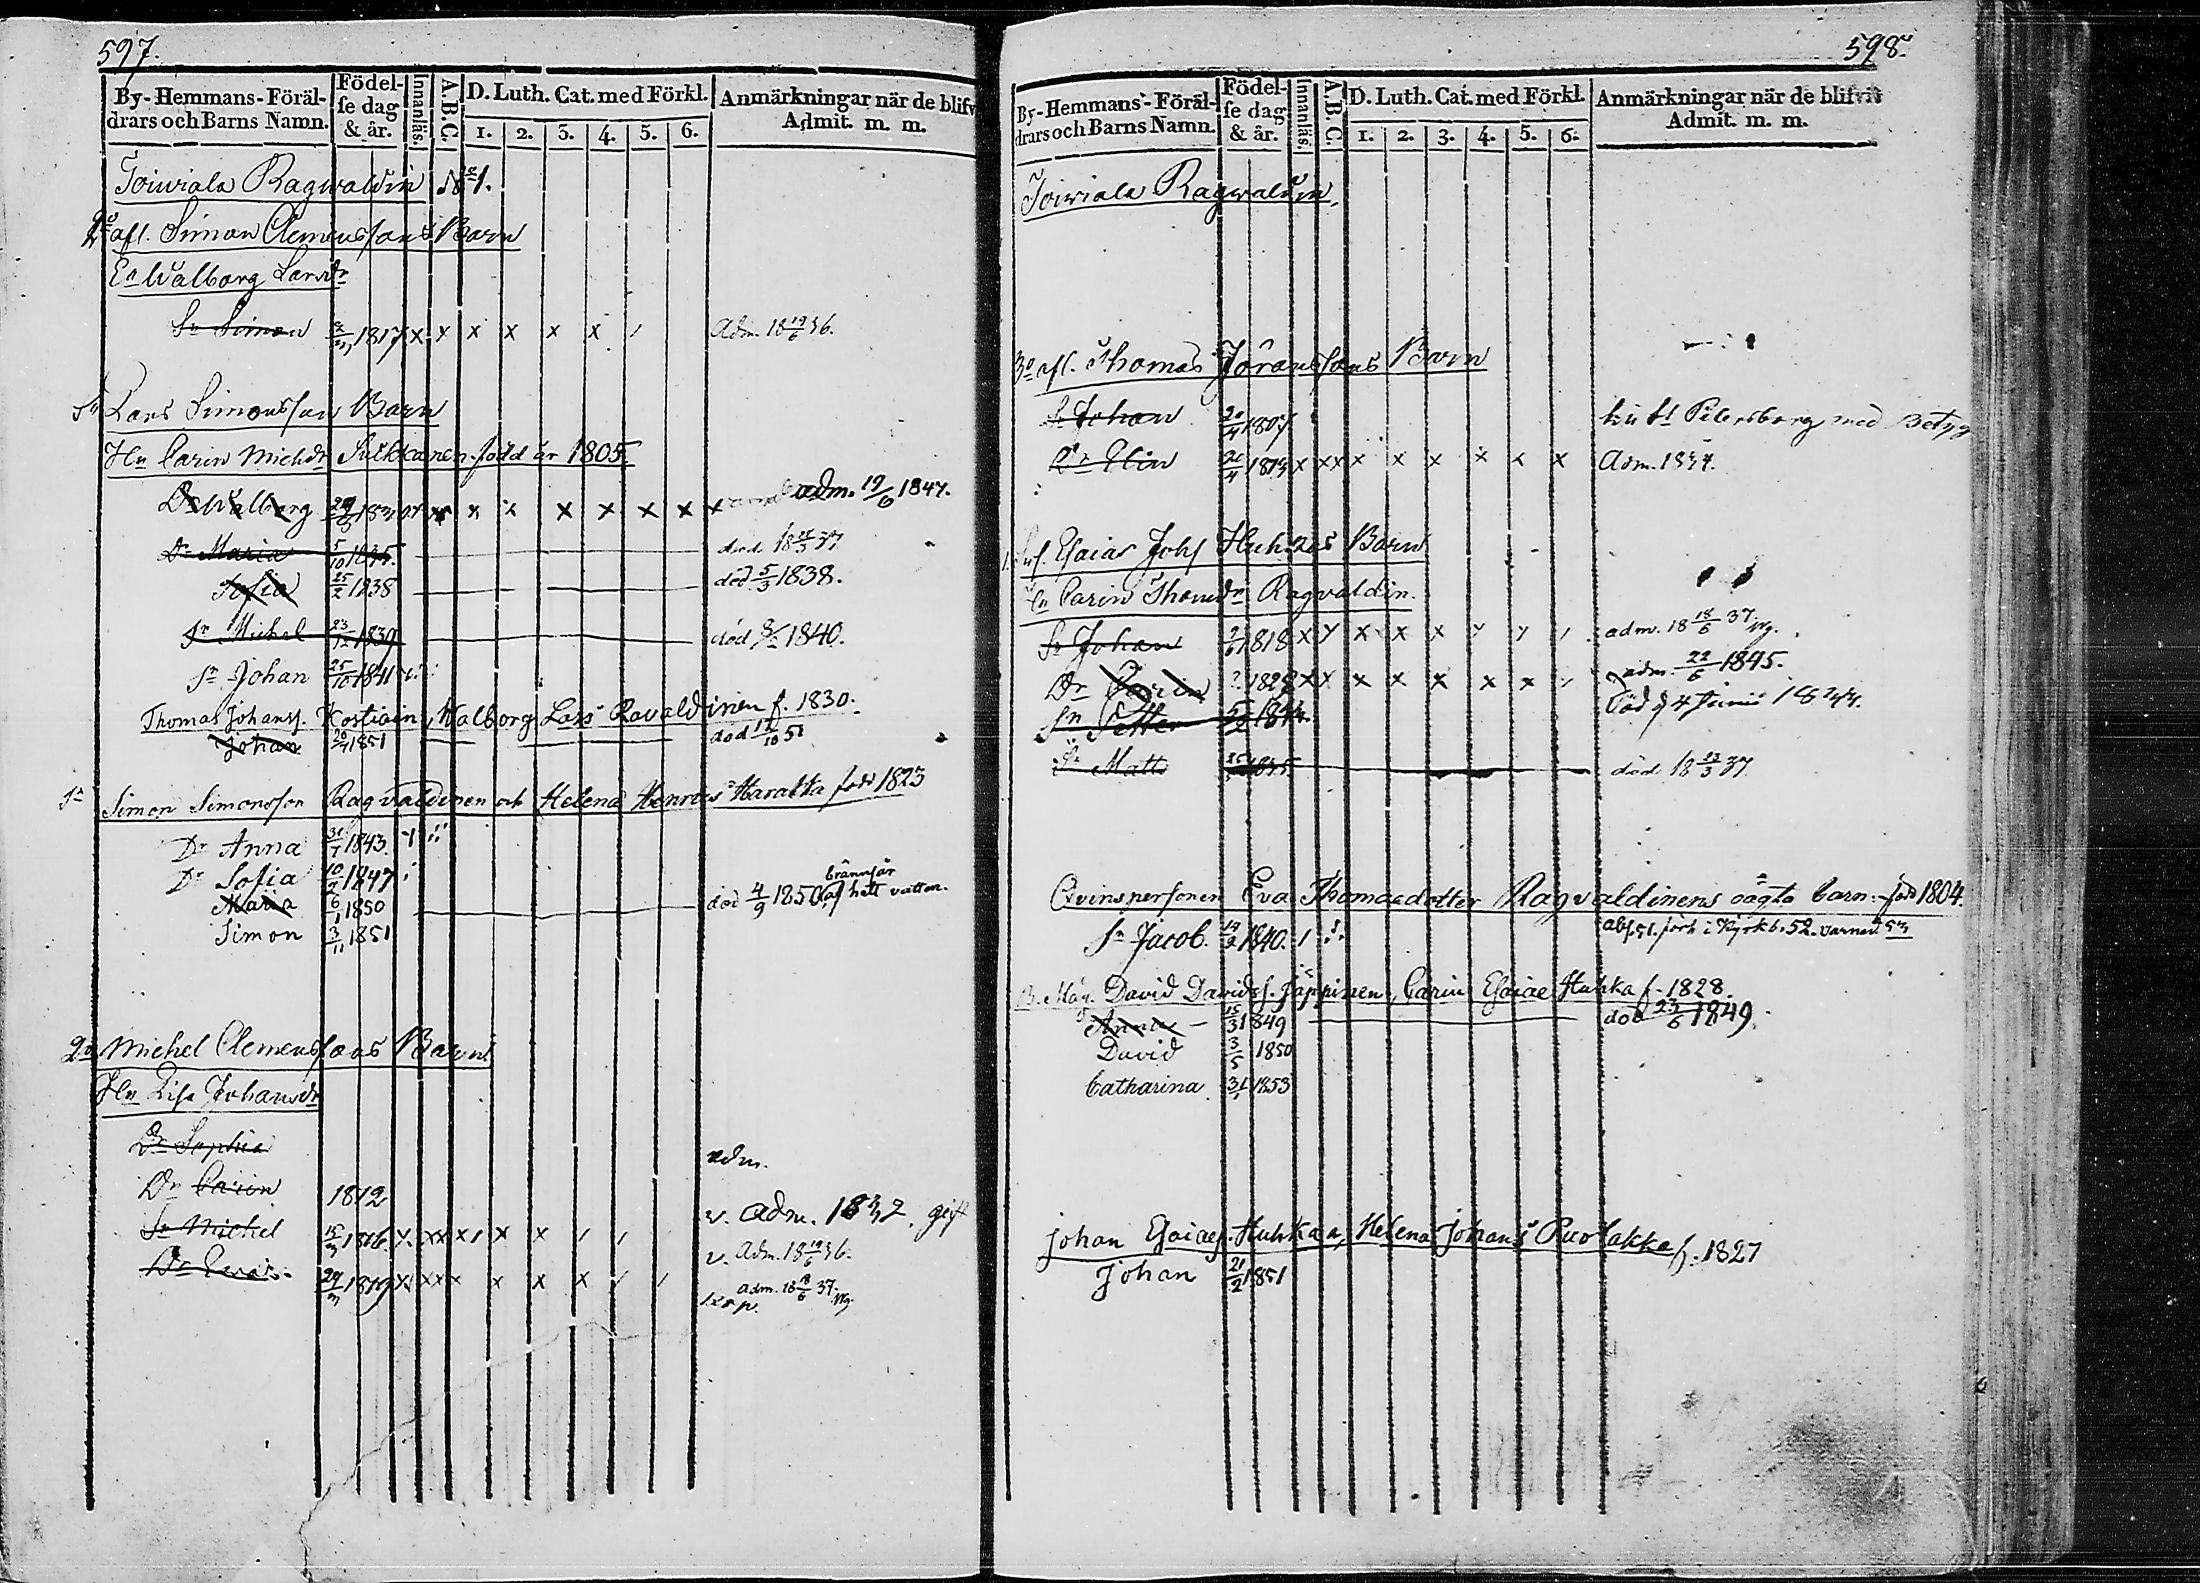 597.
By-Hemmans-Föräl-
drars och Barns Namn.
Födel-
se dag
& år.
Innanläs.
A.B.C.
D. Luth. Cat. med Förkl.
1. 2. 3. 4. 5. 6.
Anmärkningar när de blifv
Admit. m. m.
Toiviala Ragwaldin № 1.
afl. Simon Clemenssons Barn
En Walborg Larsdr
Sn Simon 1817 x x x x x x / Adm. 18 19/6 36.
Sn Lars Simonsson Barn
Hu Carin Michdr Sukkanen född år 1805.
Dr Walborg x x x x x x adm. 19/6 1847.
Dr Maria 5/10 1835. död 37
Sofia 25/2 1838 död 5/3 1838.
Sn Michel 23/12 1839 död 1840.
Sn Johan 25/10 1841
Thomas Johanss. Kostiain, Walborg Lars Ravaldinen f. 1830.
Johan 1851 död 51
Sn Simon Simonsson Ragvaldinen och Helena Henrics Haratka född 1823
Dr Anna 31/7 1843.
Dr Sofia 10/2 1847
Maria 6/1 1850 död 4/9 1850, af hett vatten.
brännsår
Simon 3/11 1851
Michel Clemenssons Barn
Hu Lisa Johansdr
Dr Sophia adm.
Dr Carin 1812 v. Adm. 1832. gift
Sn Michel 15/3 1816 x xx x x x / / v. Adm. 18 19/6 36.
Dr Eva 1819 x xx x x x x / / adm. 18 18/6 37.
598.
By-Hemmans-Föräl-
drars och Barns Namn.
Födel-
se dag
& år.
Innanläs.
A.B.C.
D. Luth. Cat. med Förkl.
1. 2. 3. 4. 5. 6.
Anmärkningar när de blifvit
Admit. m. m.
Toiviala Ragwaldin,
3o afl. Thomas Jöranssons Barn
Sn Johan 20/4 1807 St Petersborg med Betyg
Dr Elin x xx x x x x x x Adm. 1834.
Esaias Johs Huhkas Barn
Carin Thomdr Ragvaldin.
Sn Johan 1818 x x x x x adm. 18 18/6 37
Dr Carin x x x x x x x adm. 22/6 1845.
Sn Petter 1844. Död d 4 Junii 1844.
Sn Matts 1835 död 18 37
Qvinspersonen Eva Thomasdotter Ragvaldinens oägta barn: född 1804.
Sn Jacob. 1840.
David Davidss. Jäppinen, Carin Esaiae Huhka f. 1828.
Anna 15/3 1849 död 23/6 1849.
David 3/5 1850
Catharina 1853
Johan Esaiaes. Huhkan, Helena Johans Ruotakka f. 1827
Johan 21/2 1851